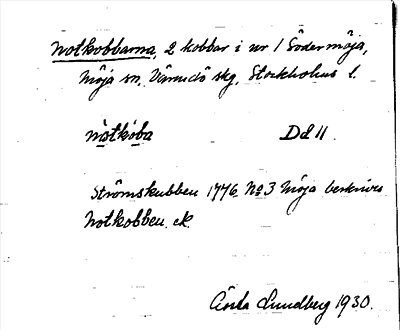 Notkobbarna, 2 kobbar i nr 1 Södermöja,
Möja sn, Värmdö skg, Stockholms l.
nòtkòba Dd 11.
Strömskubben 1776 No 3 Möja beskrives
Notkobben. ek.
Gösta Lundberg 1930.